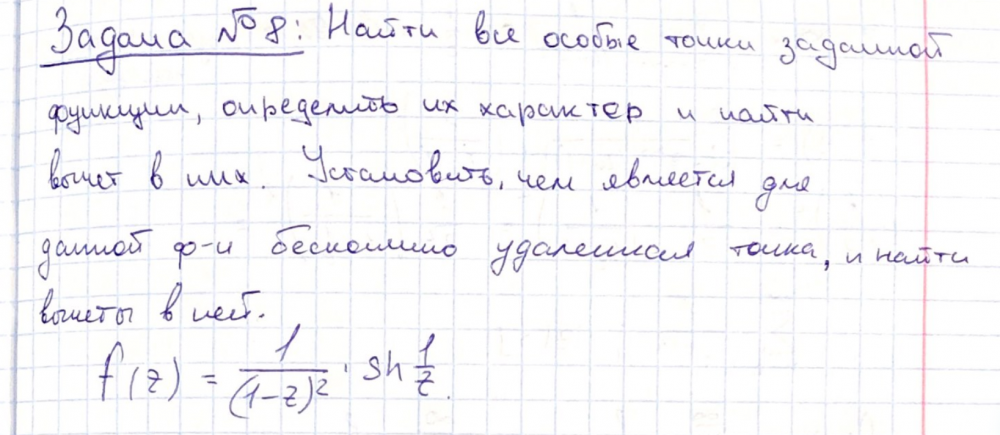 Задача №8: Найти все особые точки заданной
функции, определить их характер и найти
вычет в них. Установить, чем является для
данной ф-и бесконечно удаленная точка, и найти
вычеты в ней.
f(z) = 1/(1-z)² · sh 1/z.